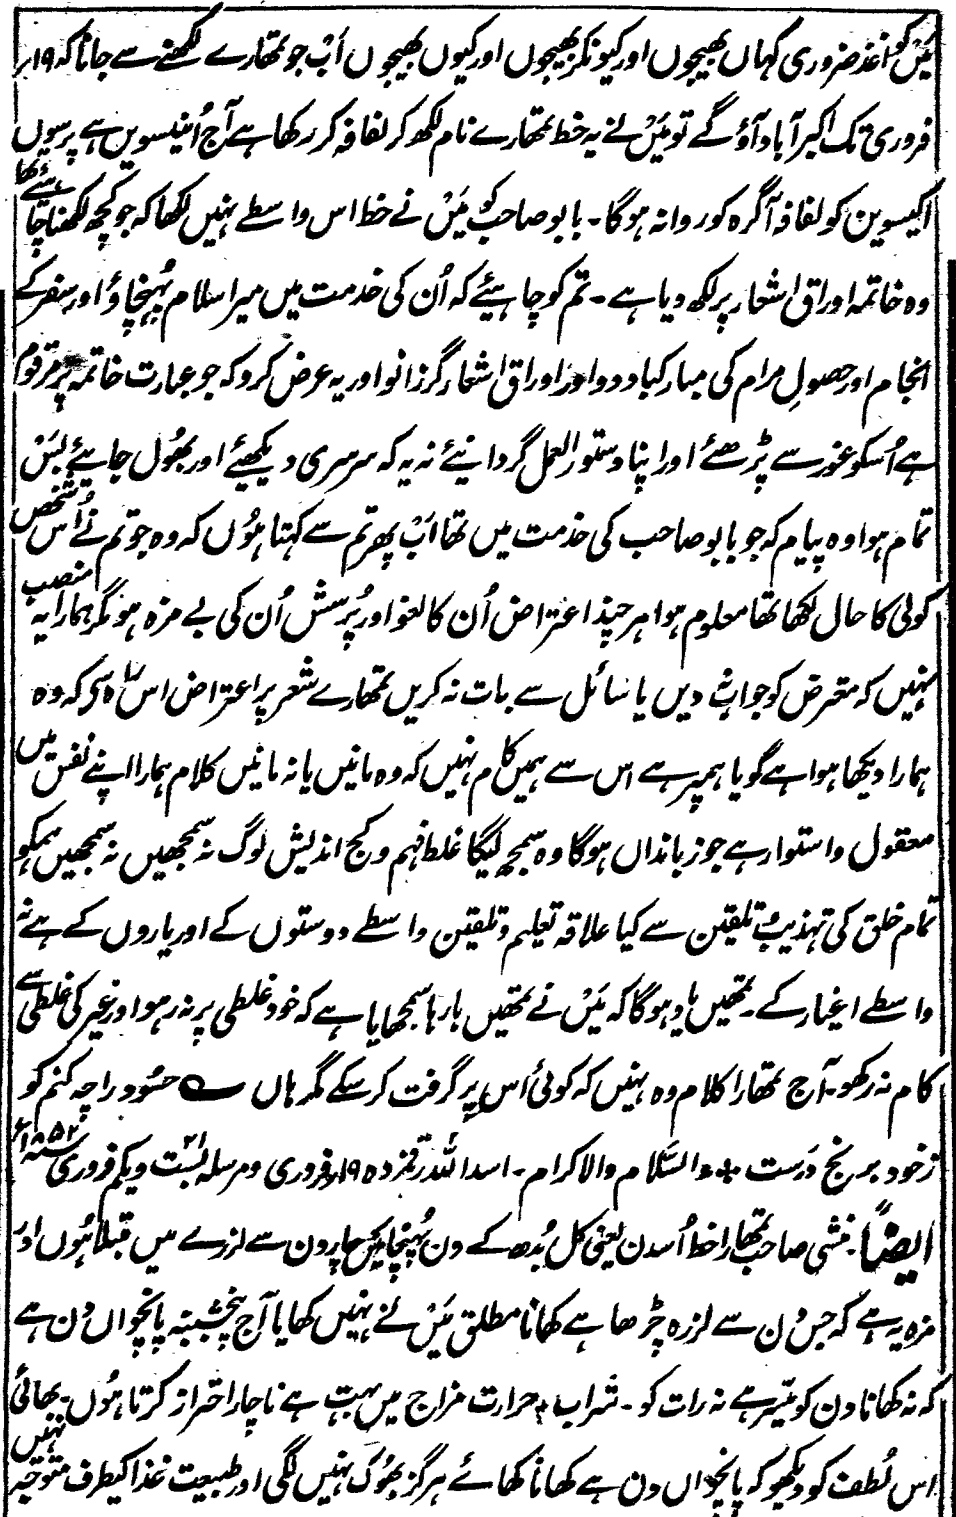 میں کاغذ ضروری کہاں بھیجوں اور کیونکر بھیجوں اور کیوں بھیجوں اَب جو تمھارے لکھنے سے جانا کہ ۱۹؍
فروری تک اکبرآباد آؤ گے تو میں نے یہ خط تمھارے نام لکھ کر لفافہ کر رکھا ہے آج اُنیسویں ہے پرسوں
اکیسویں کو لفافہ آگرہ کو روانہ ہوگا۔ بابو صاحب کو میں نے خط اس واسطے نہیں لکھا کہ جو کچھ لکھنا چاہئے تھا
وہ خاتمہ اوراق اشعار پر لکھ دیا ہے۔ تم کو چاہیئے کہ اُن کی خدمت میں میرا سلام پہُنچاؤ اور سفر کے
انجام اور حصولِ مرام کی مبارکباد دو اور اوراق اشعار گزرانو اور یہ عرض کرو کہ جو عبارت خاتمہ پر مرقوم
ہے اُسکو غور سے پڑھئے اور اپنا دستور العمل گردانیئے نہ یہ کہ سرسری دیکھیئے اور بھُول جایئے بس
تمام ہوا وہ پیام کہ جو بابو صاحب کی خدمت میں تھا اَب پھر تم سے کہتا ہُوں کہ وہ جو تم نے اُس شخص
کولی کا حال لکھا تھا معلوم ہوا ہر چند اعتراض اُن کا لغو اور پُرسش اُن کی بے مزہ ہو مگر ہمارا یہ منصب
نہیں کہ معترض کو جواب نہ دیں یا سائل سے بات نہ کریں تمھارے شعر پر اعتراض اس راہ سے کہ وہ
ہمارا دیکھا ہوا ہے گویا ہمپر ہے اس سے ہمیں کام نہیں کہ وہ مانیں یا نہ مانیں کلام ہمارا اپنے نفس میں
معقول و استوار ہے جو زباندان ہوگا وہ سمجھ لیگا غلط فہم و کج اندیش لوگ نہ سمجھیں نہ سمجھیں ہمکو
تمام خلق کی تہذیب و تلقین سے کیا علاقہ تعلیم و تلقین واسطے دوستوں کے اور یاروں کے ہے نہ
واسطے اغیار کے۔ تمھیں یاد ہوگا کہ میں نے تمھیں بارہا سمجھایا ہے کہ خود غلطی پر نہ رہو اور غیر کی غلطی سے
کام نہ رکھو۔ آج تمھارا کلام وہ نہیں کہ کوئی اُس پر گرفت کر سکے مگر ہاں ؎ حسُود را چہ کنم کو
زخود برنج دَرست ؞ والسَّلام والاکرام۔ اسد اللہ رقمزدہ ۱۹؍ فروری و مرسلہ بست و یکم ۲۱ فروری سنہ ۱۸۵۲ء
ایضاً۔ منشی صاحب تمھارا خط اُسدن یعنی کل بُدھ کے دن پہُنچا میں چار دن سے لرزے میں مبتلا ہُوں اور
مزہ یہ ہے کہ جس دن سے لرزہ چڑھا ہے کھانا مطلق میں نے نہیں کھایا آج پنجشنبہ پانچواں دن ہے
کہ نہ کھانا دن کو میسّر ہے نہ رات کو۔ شراب، حرارت مزاج میں بہت ہے ناچار احتراز کرتا ہُوں۔ بھائی
اس لُطف کو دیکھو کہ پانچواں دن ہے کھانا کھائے ہرگز بھُوک نہیں لگی اور طبیعت غذا کیطرف متوجّہ نہیں